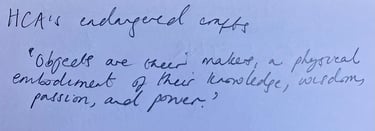 HCA's endangered crafts
'Objects are their makers, a physical
embodiment of their knowledge, wisdom,
passion, and power.'